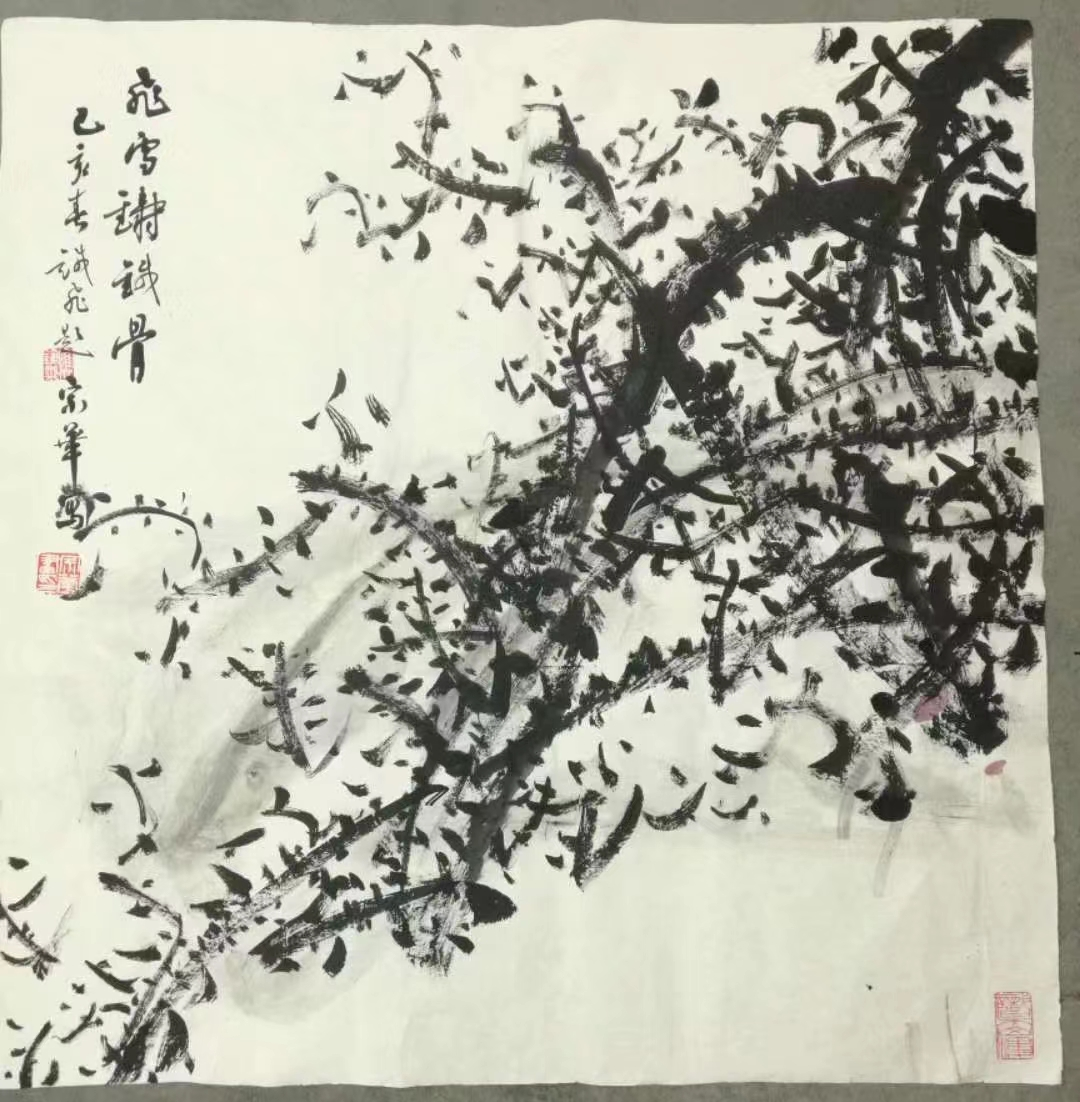 飛雪鑄鐵骨
己亥春誠飛題
宗華寫